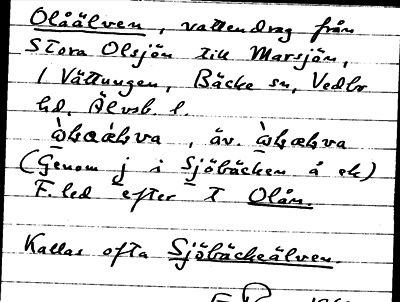 Olåälven, vattendrag från
Stora Olsjön till Marsjön,
l Vättungen, Bäcke sn, Vedbo
hd, Älvsb. l.
, äv.
(Genom j i Sjöbäcken å ek)
F. led efter T Olån.
Kallas ofta Sjöbäckeälven.